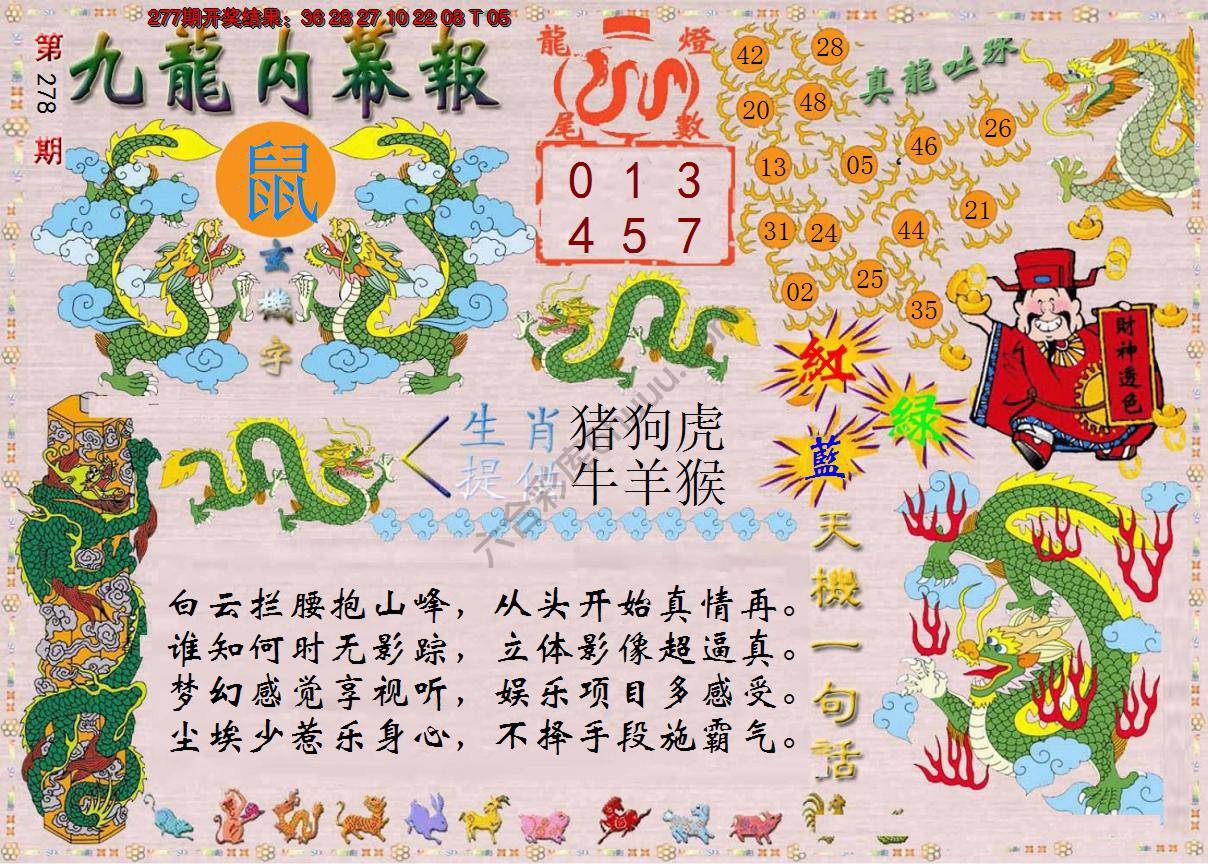 277期开奖结果：36 28 27 10 22 08 T 05
第278期
九龍内幕報
鼠
玄機字
龍燈
尾數
0 1 3
4 5 7
真龍吐珠
42 28
20 48
13 05 46 26
31 24 44 21
02 25 35
財神透色
紅
綠
藍
生肖 猪狗虎
提供 牛羊猴
白云拦腰抱山峰，从头开始真情再。
谁知何时无影踪，立体影像超逼真。
梦幻感觉享视听，娱乐项目多感受。
尘埃少惹乐身心，不择手段施霸气。
天機一句話
六合彩库